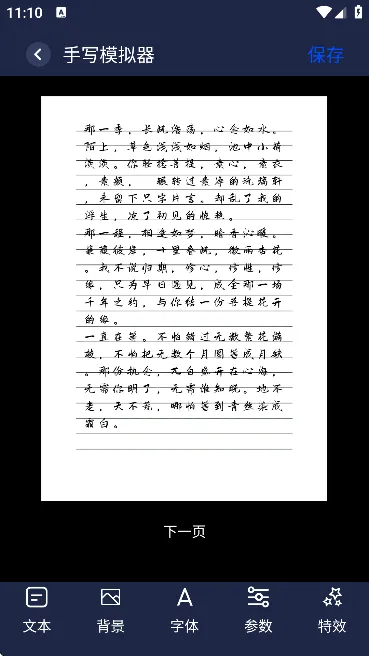 11:10
手写模拟器
保存
那一季，长风浩荡，心念如水。
陌上，草色浅浅如烟，池中小荷
淡淡。你轻捻菩提，素心，素衣
，素颜，　辗转过素净的流端轩
，未留下只字片言。却乱了我的
浮生，凉了初见的惊艳。
那一程，相逢如梦，暗香沁暖。
蒹葭彼岸，十里春风，微雨杏花
。我不说归期，修心，修雅，修
缘，只为早日遇见，成全那一场
千年之约，与你结一份菩提花开
的缘。
一直在等。不怕错过无数繁花满
枝，不怕把无数个月圆等成月缺
。那份执念，兀自盛开在心海，
无需你明了，无需谁知晓。地不
老，天不荒，哪怕等到青丝染成
霜白。
下一页
文本
背景
字体
参数
特效